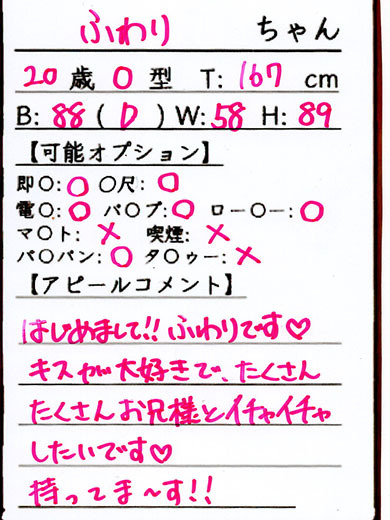 ふわり ちゃん
20歳 O型 T:167cm
B:88(D)W:58 H:89
【可能オプション】
即〇:○ 〇尺:○
電〇:○ バ〇ブ:○ ロー〇ー:○
マ〇ト:× 喫煙:×
パ〇パン:○ タ〇ゥー:×
【アピールコメント】
はじめまして!!ふわりです♡
キスが大好きで、たくさん
たくさんお兄様とイチャイチャ
したいです♡
持ってま〜す!!